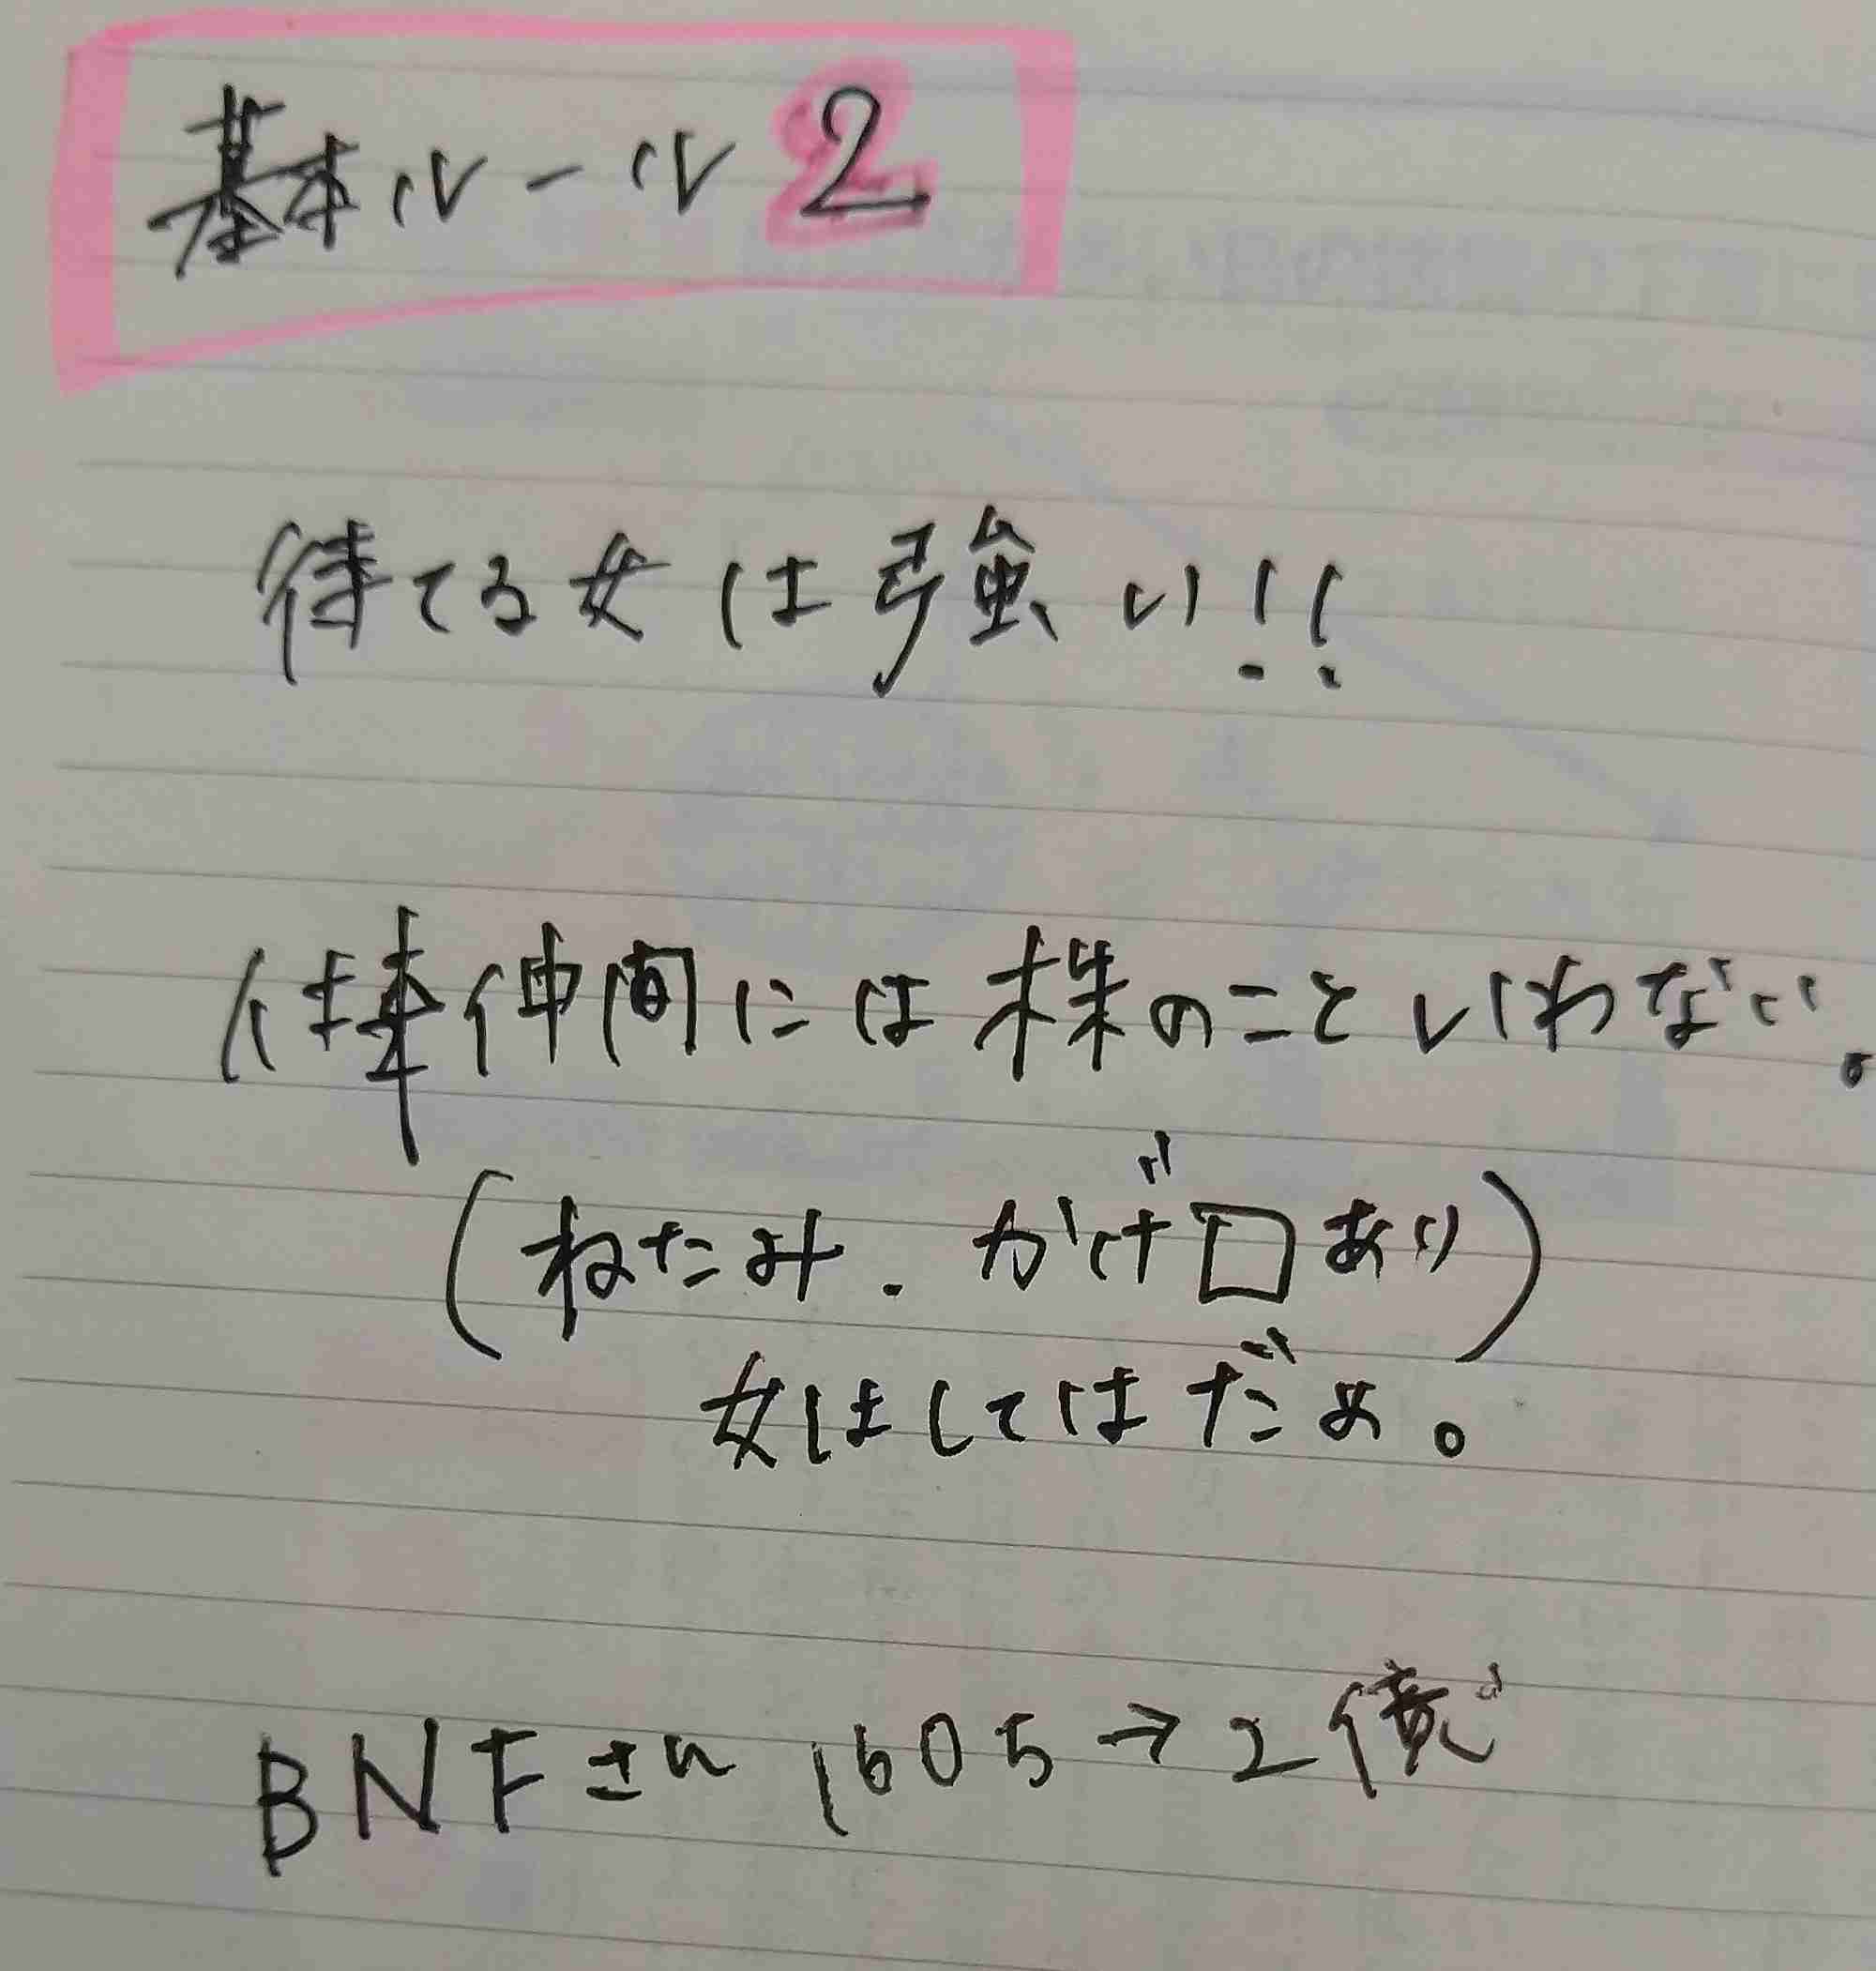 基本ルール2
待てる女は強い!!
仕事仲間には株のこといわない。
(ねたみ.かげ口あり)
女はしてはだめ。
BNFさん 160万→2億